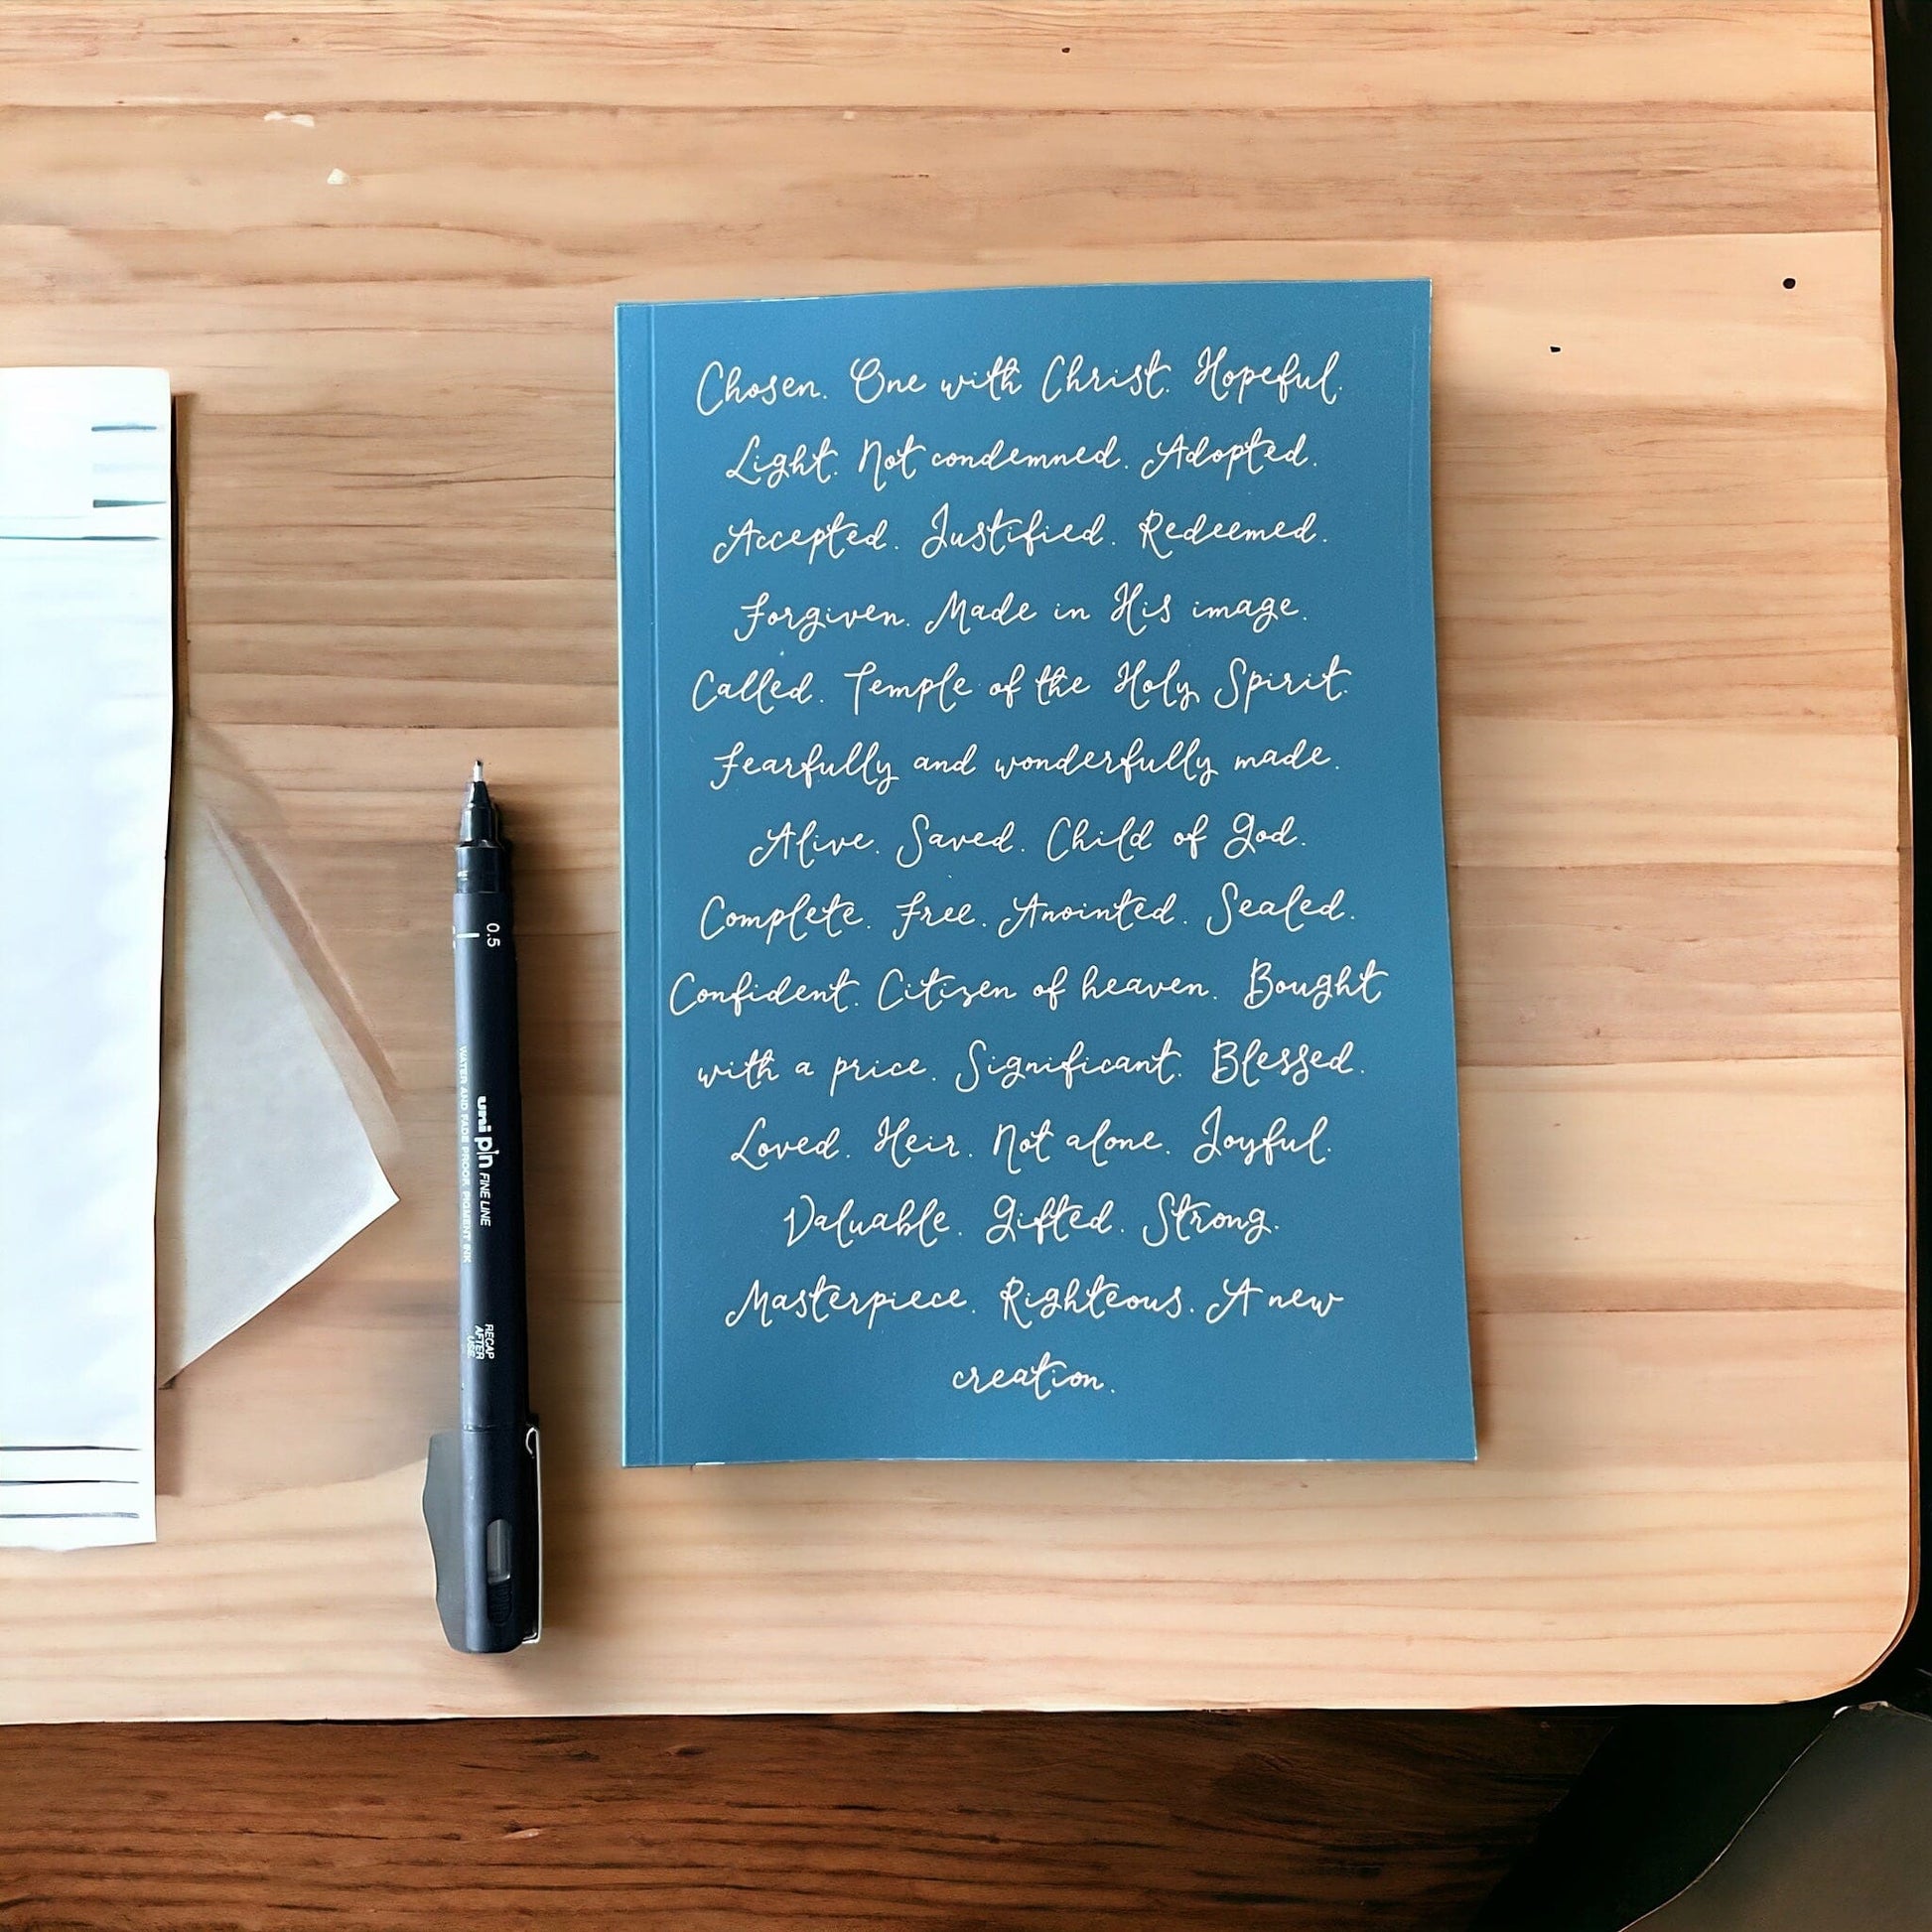 Chosen. One with Christ. Hopeful.
Light. Not condemned. Adopted.
Accepted. Justified. Redeemed.
Forgiven. Made in His image.
Called. Temple of the Holy Spirit.
Fearfully and wonderfully made.
Alive. Saved. Child of God.
Complete. Free. Anointed. Sealed.
Confident. Citizen of heaven. Bought
with a price. Significant. Blessed.
Loved. Heir. Not alone. Joyful.
Valuable. Gifted. Strong.
Masterpiece. Righteous. A new
creation.
0.5
uni pin FINE LINE
WATER AND FADE PROOF, PIGMENT INK
RECAP
AFTER
USE